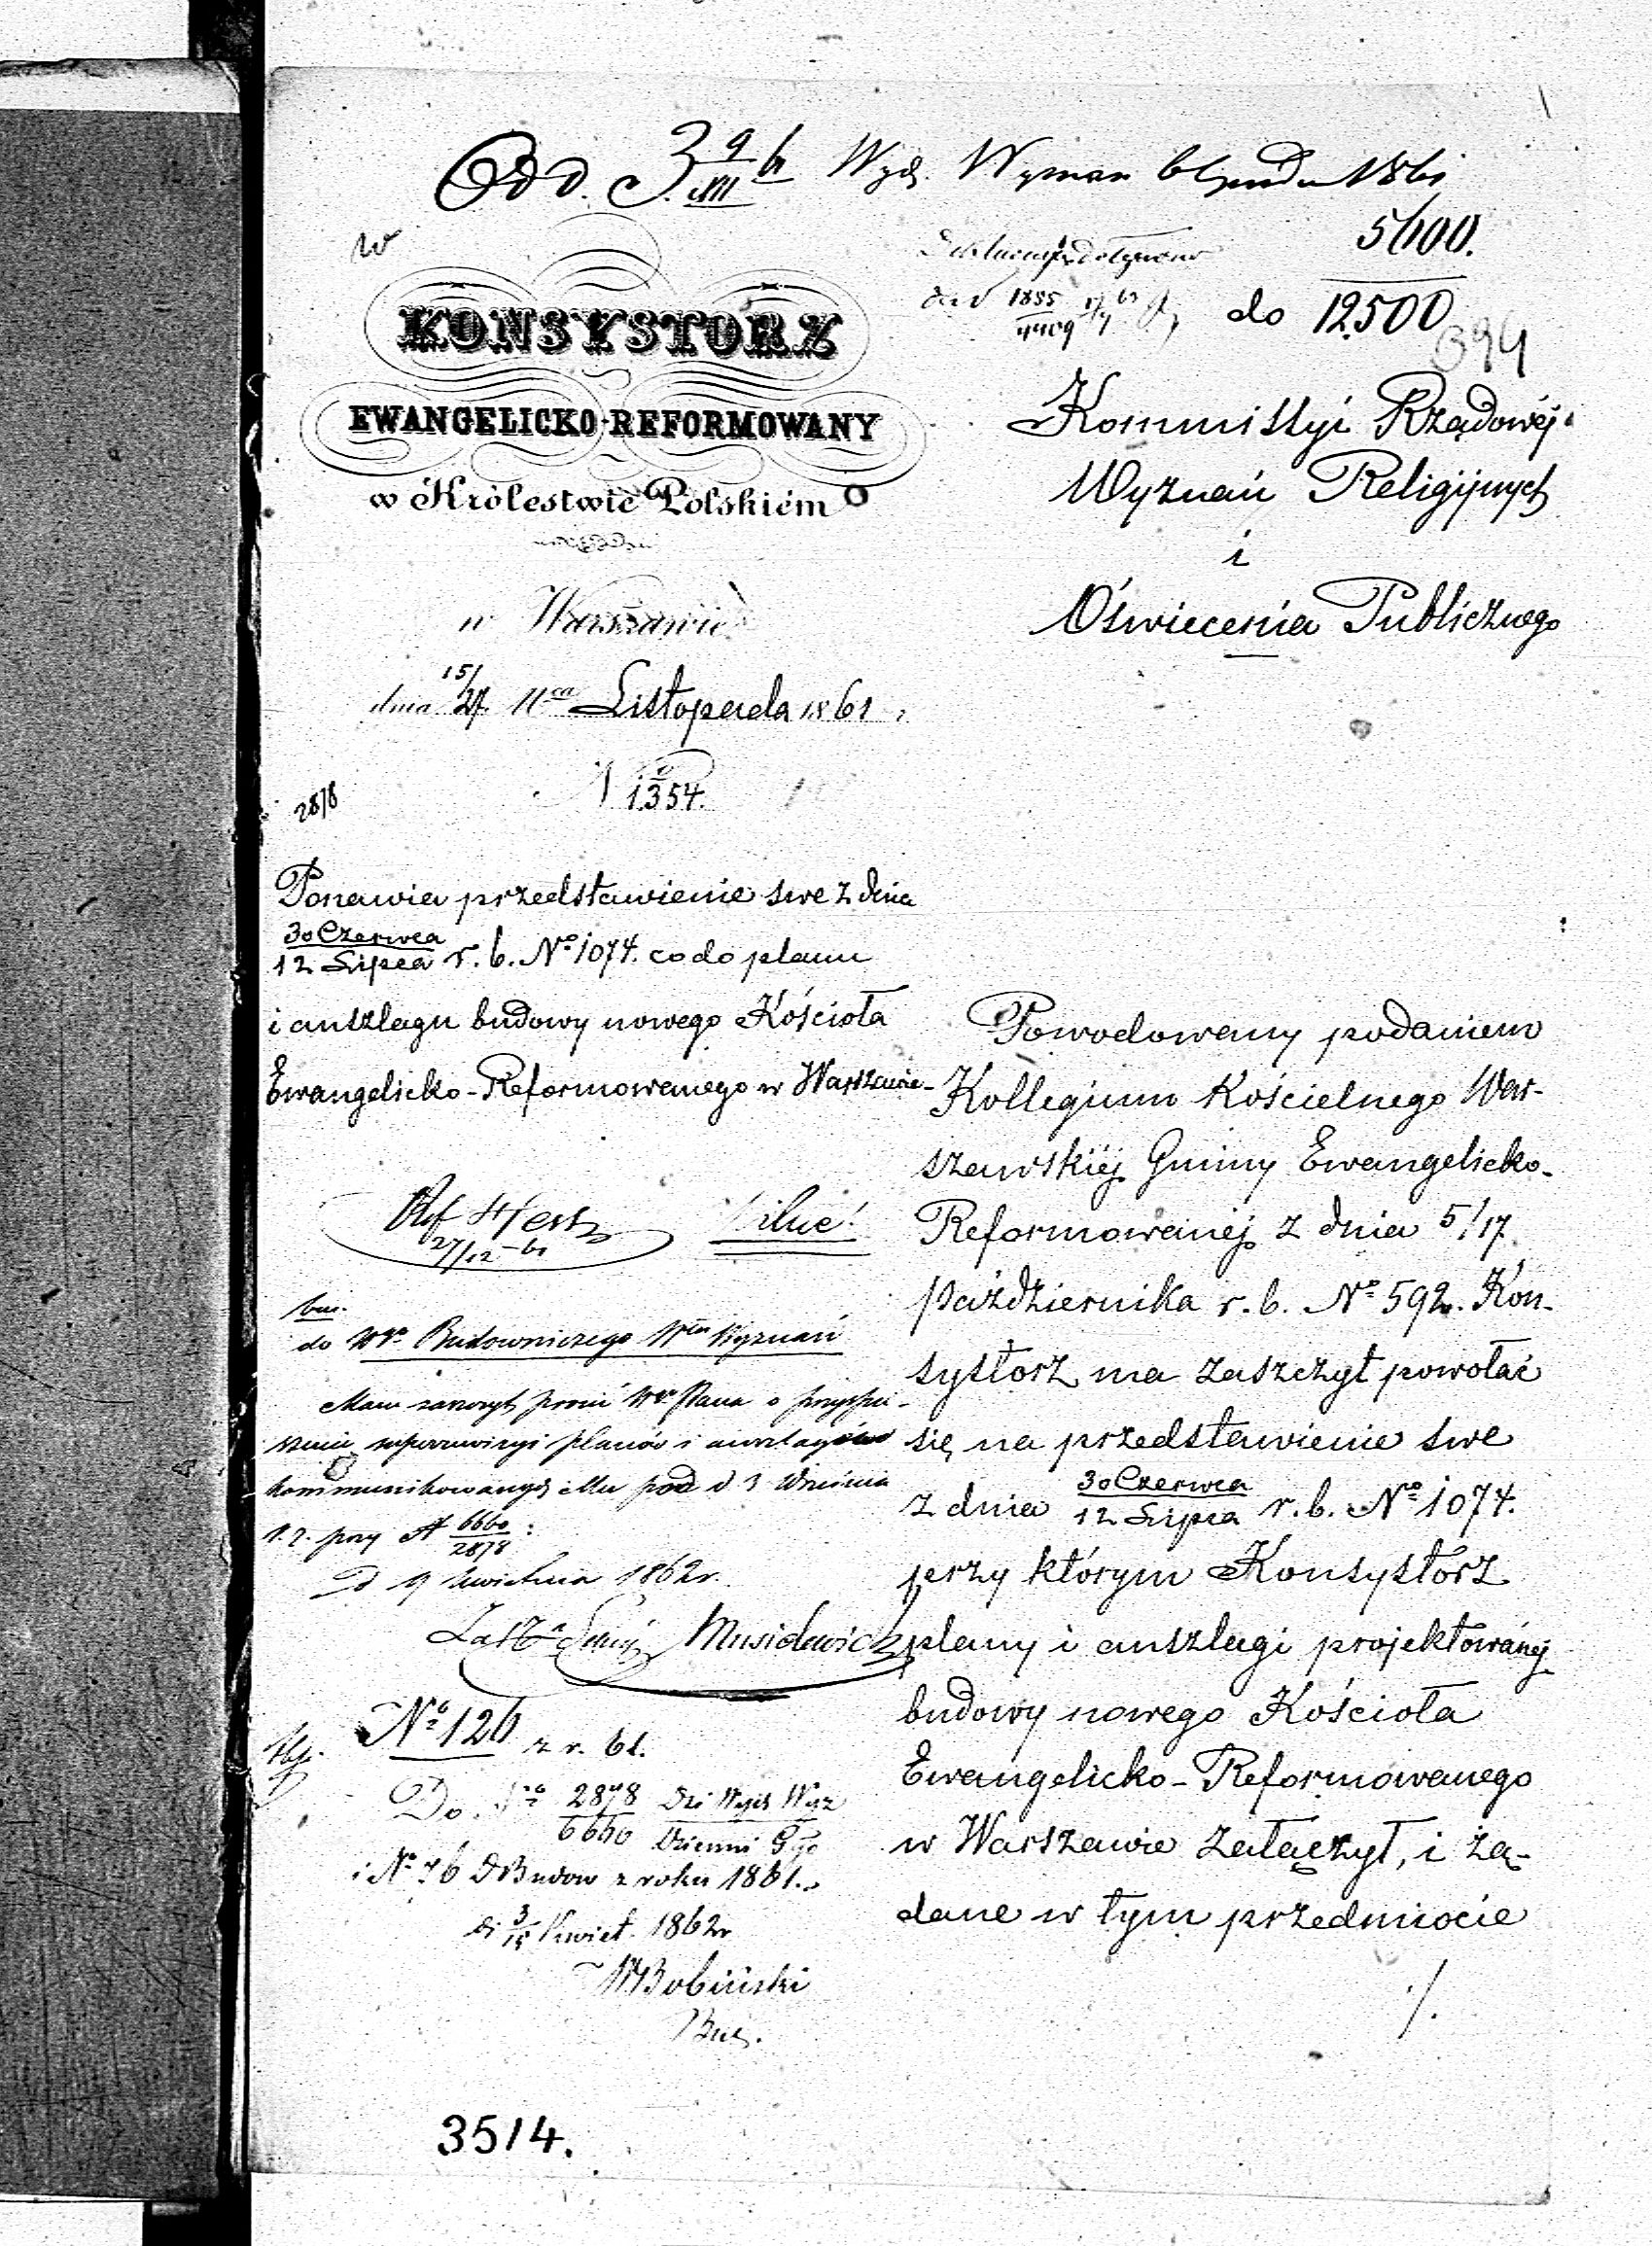 Odd. Wydz. Wyznań 6 Grudnia 1861
w
5600.
do 12500
394
KONSYSTORZ
EWANGELICKO-REFORMOWANY
w Królestwie Polskiém
w Warszawie
dnia 15/27 Mca Listopada 1861
No 1354.
2878
Kommissyi Rządowéj
Wyznań Religijnych
i
Oświecenia Publicznego
Ponawia przedstawienie swe z dnia
30 Czerwca / 12 Lipca r. b. No 1074. co do planu
i anszlagu budowy nowego Kościoła
Ewangelicko-Reformowanego w Warszawie
Ref Hertz
27/12 61
Pilne!
do WPo Budowniczego Wyznań
Mam zaszczyt prosić WPana o przyspie-
szenie superrewizyi planów i anszlagów
kommunikowanych Mu pod d 3 Września
r. z. przy N 6660/2878:
D 9 Kwietnia 1862 r.
Musidowicz
No 126 z r. 61.
Do No 2878/6660 Dzi Wydz Wyz
Dzienni Głgo
i No 76 DBudow z roku 1861.
D 3/15 Kwiet. 1862 r
WBobiński
Bud.
Powodowany podaniem
Kollegium Kościelnego War-
szawskiéj Gminy Ewangelicko-
Reformowanéj z dnia 5/17
Października r. b. No 592. Kon-
systorz ma zaszczyt powołać
się na przedstawienie swe
z dnia 30 Czerwca / 12 Lipca r. b. No 1074.
przy którym Konsystorz
plany i anszlagi projektowanéj
budowy nowego Kościoła
Ewangelicko-Reformowanego
w Warszawie załączył, i żą-
dane w tym przedmiocie
./.
3514.